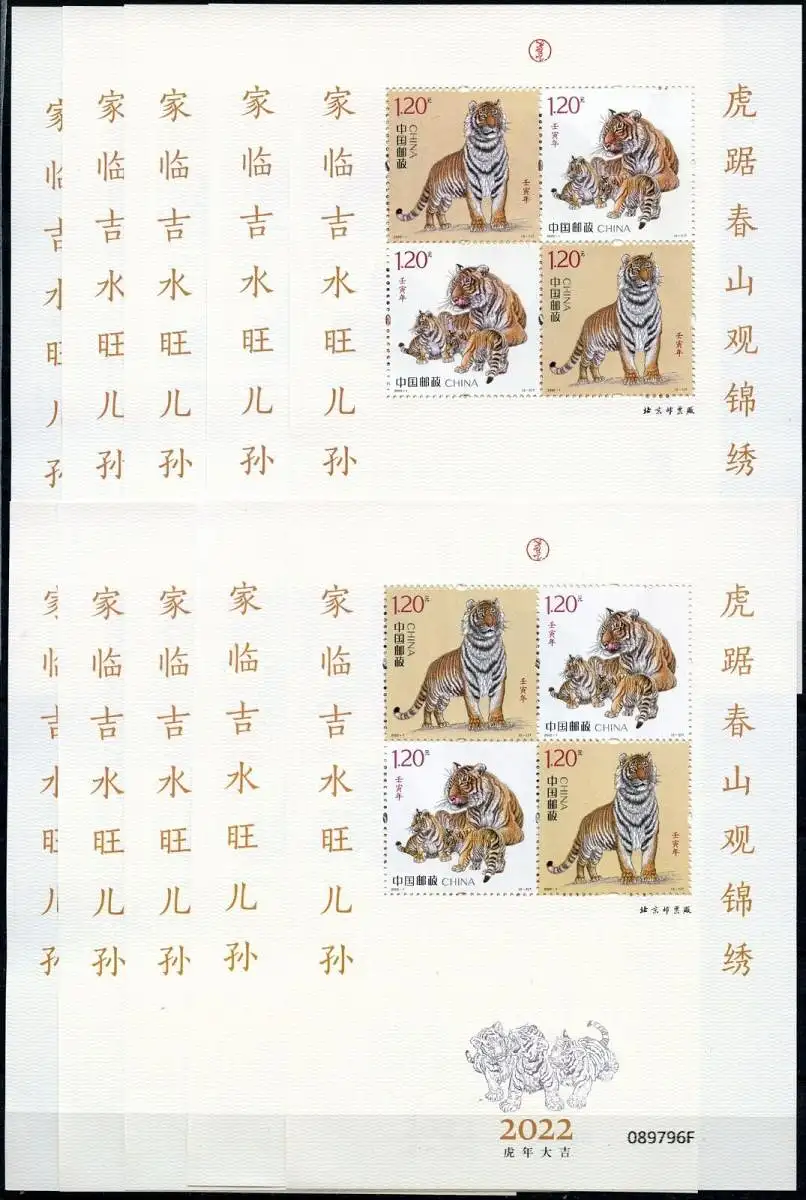 家临吉水旺儿孙
家临吉水旺儿孙
家临吉水旺儿孙
家临吉水旺儿孙
家临吉水旺儿孙
1.20元
中国邮政
CHINA
壬寅年
1.20元
壬寅年
中国邮政 CHINA
1.20元
壬寅年
中国邮政 CHINA
1.20元
中国邮政
CHINA
壬寅年
北京邮票厂
虎踞春山观锦绣
家临吉水旺儿孙
家临吉水旺儿孙
家临吉水旺儿孙
家临吉水旺儿孙
家临吉水旺儿孙
1.20元
中国邮政
CHINA
壬寅年
1.20元
壬寅年
中国邮政 CHINA
1.20元
壬寅年
中国邮政 CHINA
1.20元
中国邮政
CHINA
壬寅年
北京邮票厂
虎踞春山观锦绣
2022
虎年大吉
089796F